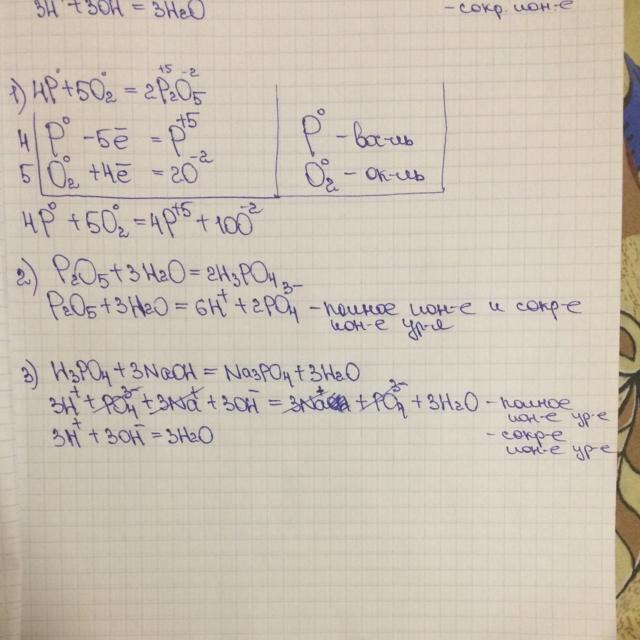 3H⁺ + 3OH⁻ = 3H₂O - сокр. ион-е
1) 4P⁰ + 5O₂⁰ = 2P₂⁺⁵O₅⁻²
4 | P⁰ - 5ē = P⁺⁵ P⁰ - вос-ль
5 | O₂⁰ + 4ē = 2O⁻² O₂⁰ - ок-ль
4P⁰ + 5O₂⁰ = 4P⁺⁵ + 10O⁻²
2) P₂O₅ + 3H₂O = 2H₃PO₄
P₂O₅ + 3H₂O = 6H⁺ + 2PO₄³⁻ - полное ион-е и сокр-е
ион-е ур-е
3) H₃PO₄ + 3NaOH = Na₃PO₄ + 3H₂O
3H⁺ + PO₄³⁻ + 3Na⁺ + 3OH⁻ = 3Na⁺ + PO₄³⁻ + 3H₂O - полное
ион-е ур-е
3H⁺ + 3OH⁻ = 3H₂O - сокр-е
ион-е ур-е